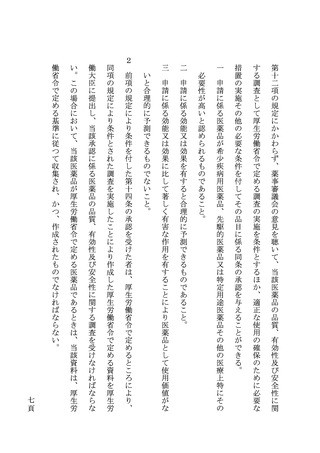 第十二項の規定にかかわらず、薬事審議会の意見を聴いて、当該医薬品の品質、有効性及び安全性に関
する調査として厚生労働省令で定める調査の実施を条件とするほか、適正な使用の確保のために必要な
措置の実施その他の必要な条件を付してその品目に係る同条の承認を与えることができる。
一　申請に係る医薬品が希少疾病用医薬品、先駆的医薬品又は特定用途医薬品その他の医療上特にその
必要性が高いと認められるものであること。
二　申請に係る効能又は効果を有すると合理的に予測できるものであること。
三　申請に係る効能又は効果に比して著しく有害な作用を有することにより医薬品として使用価値がな
いと合理的に予測できるものでないこと。
２　前項の規定により条件を付した第十四条の承認を受けた者は、厚生労働省令で定めるところにより、
同項の規定により条件とされた調査を実施したことにより作成した厚生労働省令で定める資料を厚生労
働大臣に提出し、当該承認に係る医薬品の品質、有効性及び安全性に関する調査を受けなければならな
い。この場合において、当該医薬品が厚生労働省令で定める医薬品であるときは、当該資料は、厚生労
働省令で定める基準に従つて収集され、かつ、作成されたものでなければならない。
七頁